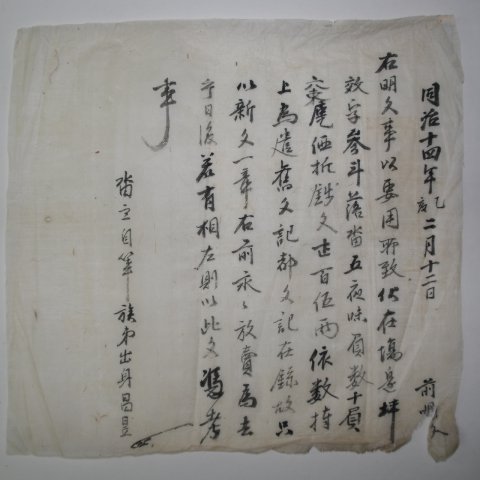 同治十四年乙亥二月十二日 前明文
右明文事以要用所致伏在 坪
效字參斗落畓五夜味負數十負
庫 價折錢文 百伍兩依數捧
上爲遣舊文記都文記在錄故只
以新文一章右前永永放賣爲去
乎日後若有相左則以此文憑考
事
畓主自筆族弟出身昌昱